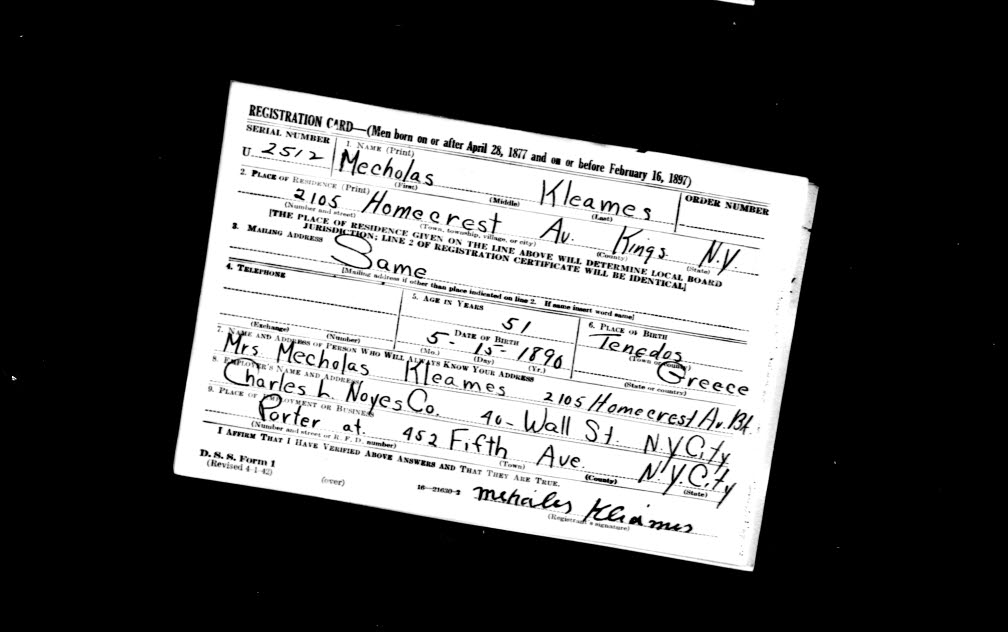 REGISTRATION CARD—(Men born on or after April 28, 1877 and on or before February 16, 1897)
SERIAL NUMBER
U 2512
1. NAME (Print)
Mecholas Kleames
(First) (Middle) (Last)
ORDER NUMBER
2. PLACE OF RESIDENCE (Print)
2105 Homecrest Av. Kings N.Y.
(Number and street) (Town, township, village, or city) (County) (State)
[THE PLACE OF RESIDENCE GIVEN ON THE LINE ABOVE WILL DETERMINE LOCAL BOARD
JURISDICTION; LINE 2 OF REGISTRATION CERTIFICATE WILL BE IDENTICAL]
3. MAILING ADDRESS
Same
[Mailing address if other than place indicated on line 2. If same insert word same]
4. TELEPHONE
(Exchange) (Number)
5. AGE IN YEARS
51
DATE OF BIRTH
5- 15- 1890
(Mo.) (Day) (Yr.)
6. PLACE OF BIRTH
Tenedos
(Town or county)
Greece
(State or country)
7. NAME AND ADDRESS OF PERSON WHO WILL ALWAYS KNOW YOUR ADDRESS
Mrs Mecholas Kleames 2105 Homecrest Av. Bk.
8. EMPLOYER'S NAME AND ADDRESS
Charles L. Noyes Co. 40- Wall St. N.Y City
9. PLACE OF EMPLOYMENT OR BUSINESS
Porter at. 452 Fifth Ave. N.Y. City
(Number and street or R. F. D. number) (Town) (County) (State)
I AFFIRM THAT I HAVE VERIFIED ABOVE ANSWERS AND THAT THEY ARE TRUE.
D. S. S. Form 1
(Revised 4-1-42)
(over)
16—21630-2
(Registrant's signature)